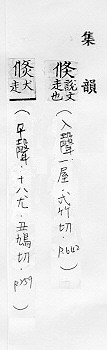 集韻
倏 說文走也(入聲·一屋·式竹切·P.642)
倏 犬走(平聲·十八尤·丑鳩切·P.259)